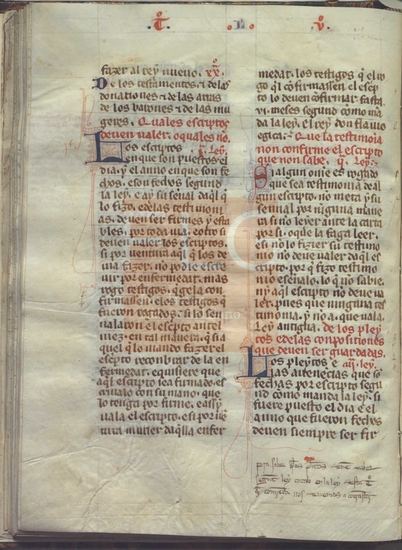 T. L. V
fazer al rey nueuo. xx.
De los testamentos & delas
donationes & de las arras
de los barones & de las mu
geres. Quales escriptos
deuen ualer. o quales no.
Los escriptos j. ley.
en que son puestos el
dia. y el anno en que son fe
chos. e son fechos segund
la ley. e ay su sennal daq̃l q̃
lo fizo. e de las testimoni
as. deuen ser firmes y esta
bles. por toda uia. e otro si
deuen ualer los escriptos.
si por uentura aq̃l q̃ los de
uia fazer. no podie escre
uir por enfermedat. mas
rogo testigos. q̃ gela con
firmassen. e los testigos q̃
fueron rogados. si lo sen
nalaron el escpto
mez. en tal manera. q̃ si a
quel q̃ lo mando fazer el
escpto recombrar de la en
fermedat. e quisiere que
aq̃l escripto sea firmado. es
criualo con su mano. que
lo tenga por firme. e assy
uala el escripto. e si por uẽ
tura muriere daq̃lla enfer
medat. los testigos q̃ el ro
go q̃ cõfirmassen el escp
to lo deuen cõfirmar. fasta
vi. meses segund como mã
da la ley. el rey don flauio
egica. Que la testimoĩa
non confirme el escripto
que non sabe. ij. Ley.
Si algun omne es rogado
que sea testimonia de al
gun escripto. no meta y su
sennal por ninguna mane
ra si no leyer ante la carta
por si. o que la faga leer.
e si no lo fizier su testimo
nio no deue ualer daq̃l es
cripto. por q̃ fizo testimo
nio e sennalo. lo q̃ no sabie.
ni aq̃l escripto no deue ua
ler. pues que ninguna tes
timonia. y no a. que uala.
Ley antigua. de los pley
tos e de las conposiciones
que deuen ser guardadas.
Los pleytos e iij. ley.
Las auenencias que se
fechas por escripto segũ
nd como manda la ley. si
fuere puesto el dia e el
anno que fueron fechos
deuen siempre ser fir